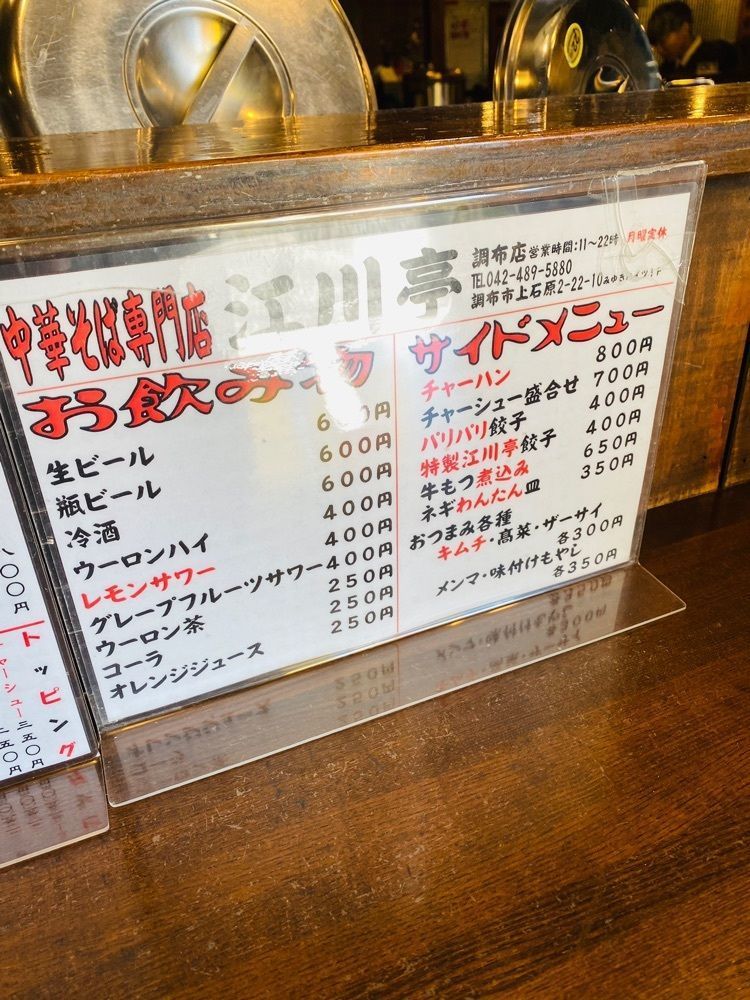 中華そば専門店 江川亭
調布店 営業時間:11〜22時 月曜定休
TEL 042-489-5880
調布市上石原2-22-10
お飲み物
生ビール 600円
瓶ビール 600円
冷酒 600円
ウーロンハイ 400円
レモンサワー 400円
グレープフルーツサワー 400円
ウーロン茶 250円
コーラ 250円
オレンジジュース 250円
サイドメニュー
チャーハン 800円
チャーシュー盛合せ 700円
パリパリ餃子 400円
特製江川亭餃子 400円
牛もつ煮込み 650円
ネギわんたん皿 350円
おつまみ各種
キムチ・高菜・ザーサイ
各300円
メンマ・味付けもやし
各350円
トッピング